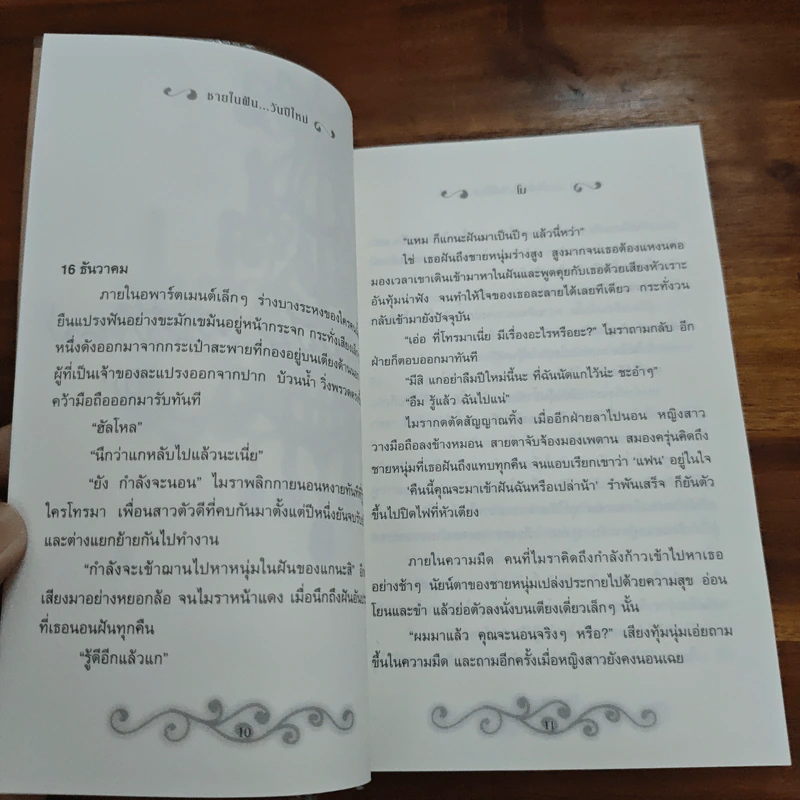 ชายในฝัน...วันปีใหม่
16 ธันวาคม
ภายในอพาร์ตเมนต์เล็กๆ ร่างบางระหงของใคร
ยืนแปรงฟันอย่างขะมักเขม้นอยู่หน้ากระจก กระทั่งเสียง
หนึ่งดังออกมาจากกระเป๋าสะพายที่กองอยู่บนเตียงด้าน
ผู้ที่เป็นเจ้าของละแปรงออกจากปาก บ้วนน้ำ วิ่งพรวด
คว้ามือถือออกมารับทันที
“ฮัลโหล”
“นึกว่าแกหลับไปแล้วนะเนี่ย”
“ยัง กำลังจะนอน” ไมราพลิกกายนอนหงายทันที
ใครโทรมา เพื่อนสาวตัวดีที่คบกันมาตั้งแต่ปีหนึ่งยันจบ
และต่างแยกย้ายกันไปทำงาน
“กำลังจะเข้าฌานไปหาหนุ่มในฝันของแกนะสิ”
เสียงมาอย่างหยอกล้อ จนไมราหน้าแดง เมื่อนึกถึงฝัน
ที่เธอนอนฝันทุกคืน
“รู้ดีอีกแล้วแก”
10
โบ
“แหม ก็แกนะฝันมาเป็นปีๆ แล้วนี่หว่า”
ใช่ เธอฝันถึงชายหนุ่มร่างสูง สูงมากจนเธอต้องแหงนคอ
มองเวลาเขาเดินเข้ามาหาในฝันและพูดคุยกับเธอด้วยเสียงหัวเราะ
อันทุ้มน่าฟัง จนทำให้ใจของเธอละลายได้เลยทีเดียว กระทั่งวน
กลับเข้ามายังปัจจุบัน
“เอ่อ ที่โทรมาเนี่ย มีเรื่องอะไรหรือยะ?” ไมราถามกลับ อีก
ฝ่ายก็ตอบออกมาทันที
“มีสิ แกอย่าลืมปีใหม่นี้นะ ที่ฉันนัดแกไว้น่ะ ชะอำๆ”
“อืม รู้แล้ว ฉันไปแน่”
ไมรากดตัดสัญญาณทิ้ง เมื่ออีกฝ่ายลาไปนอน หญิงสาว
วางมือถือลงข้างหมอน สายตาจับจ้องมองเพดาน สมองครุ่นคิดถึง
ชายหนุ่มที่เธอฝันถึงแทบทุกคืน จนแอบเรียกเขาว่า ‘แฟน’ อยู่ในใจ
‘คืนนี้คุณจะมาเข้าฝันฉันหรือเปล่าน้า’ รำพันเสร็จ ก็ยันตัว
ขึ้นไปปิดไฟที่หัวเตียง
ภายในความมืด คนที่ไมราคิดถึงกำลังก้าวเข้าไปหาเธอ
อย่างช้าๆ นัยน์ตาของชายหนุ่มเปล่งประกายไปด้วยความสุข อ่อน
โยนและขำ แล้วย่อตัวลงนั่งบนเตียงเดี่ยวเล็กๆ นั้น
“ผมมาแล้ว คุณจะนอนจริงๆ หรือ?” เสียงทุ้มนุ่มเอ่ยถาม
ขึ้นในความมืด และถามอีกครั้งเมื่อหญิงสาวยังคงนอนเฉย
11